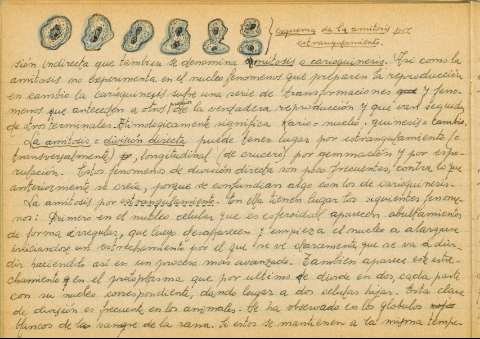 esquema de la amitosis por
estrangulamiento.
sión indirecta que tambien se denomina mitosis o carioquinesis. Así como la
amitosis no experimenta en el nucleo fenomenos que preparen la reproducción
en cambio la carioquinesis sufre una serie de transformaciones y fenó-
menos que anteceden a otros de la verdadera reproducción y que iran seguidos
de otros terminales. Etimologicamente significa Kario = nucleo, quinesis = cambio.
La amitosis = división directa puede tener lugar por estrangulamiento (o
transversalmente), longitudinal (de crucero) por gemmación y por espo-
rulación. Estos fenomenos de división directa son poco frecuentes, contra lo que
anteriormente se creia, porque se confundian algo con los de carioquinesis.
La amitosis por estrangulamiento. En ella tienen lugar los siguientes fenome-
nos: Primero en el nucleo celular que es esferoidal aparecen abultamientos
de forma irregular, que luego desaparecen y empieza el nucleo a alargarse
iniciandose un estrechamiento por el que se ve claramente que se va a divi-
dir haciendolo asi en un proceso más avanzado. Tambien aparece este estre-
chamiento en el protoplasma que por ultimo se divide en dos cada parte
con su nucleo correspondiente, dando lugar a dos celulas hijas. Esta clase
de division es frecuente en los animales. Se ha observado en los globulos
blancos de la sangre de la rana. Si estos se mantienen a la misma tempe-